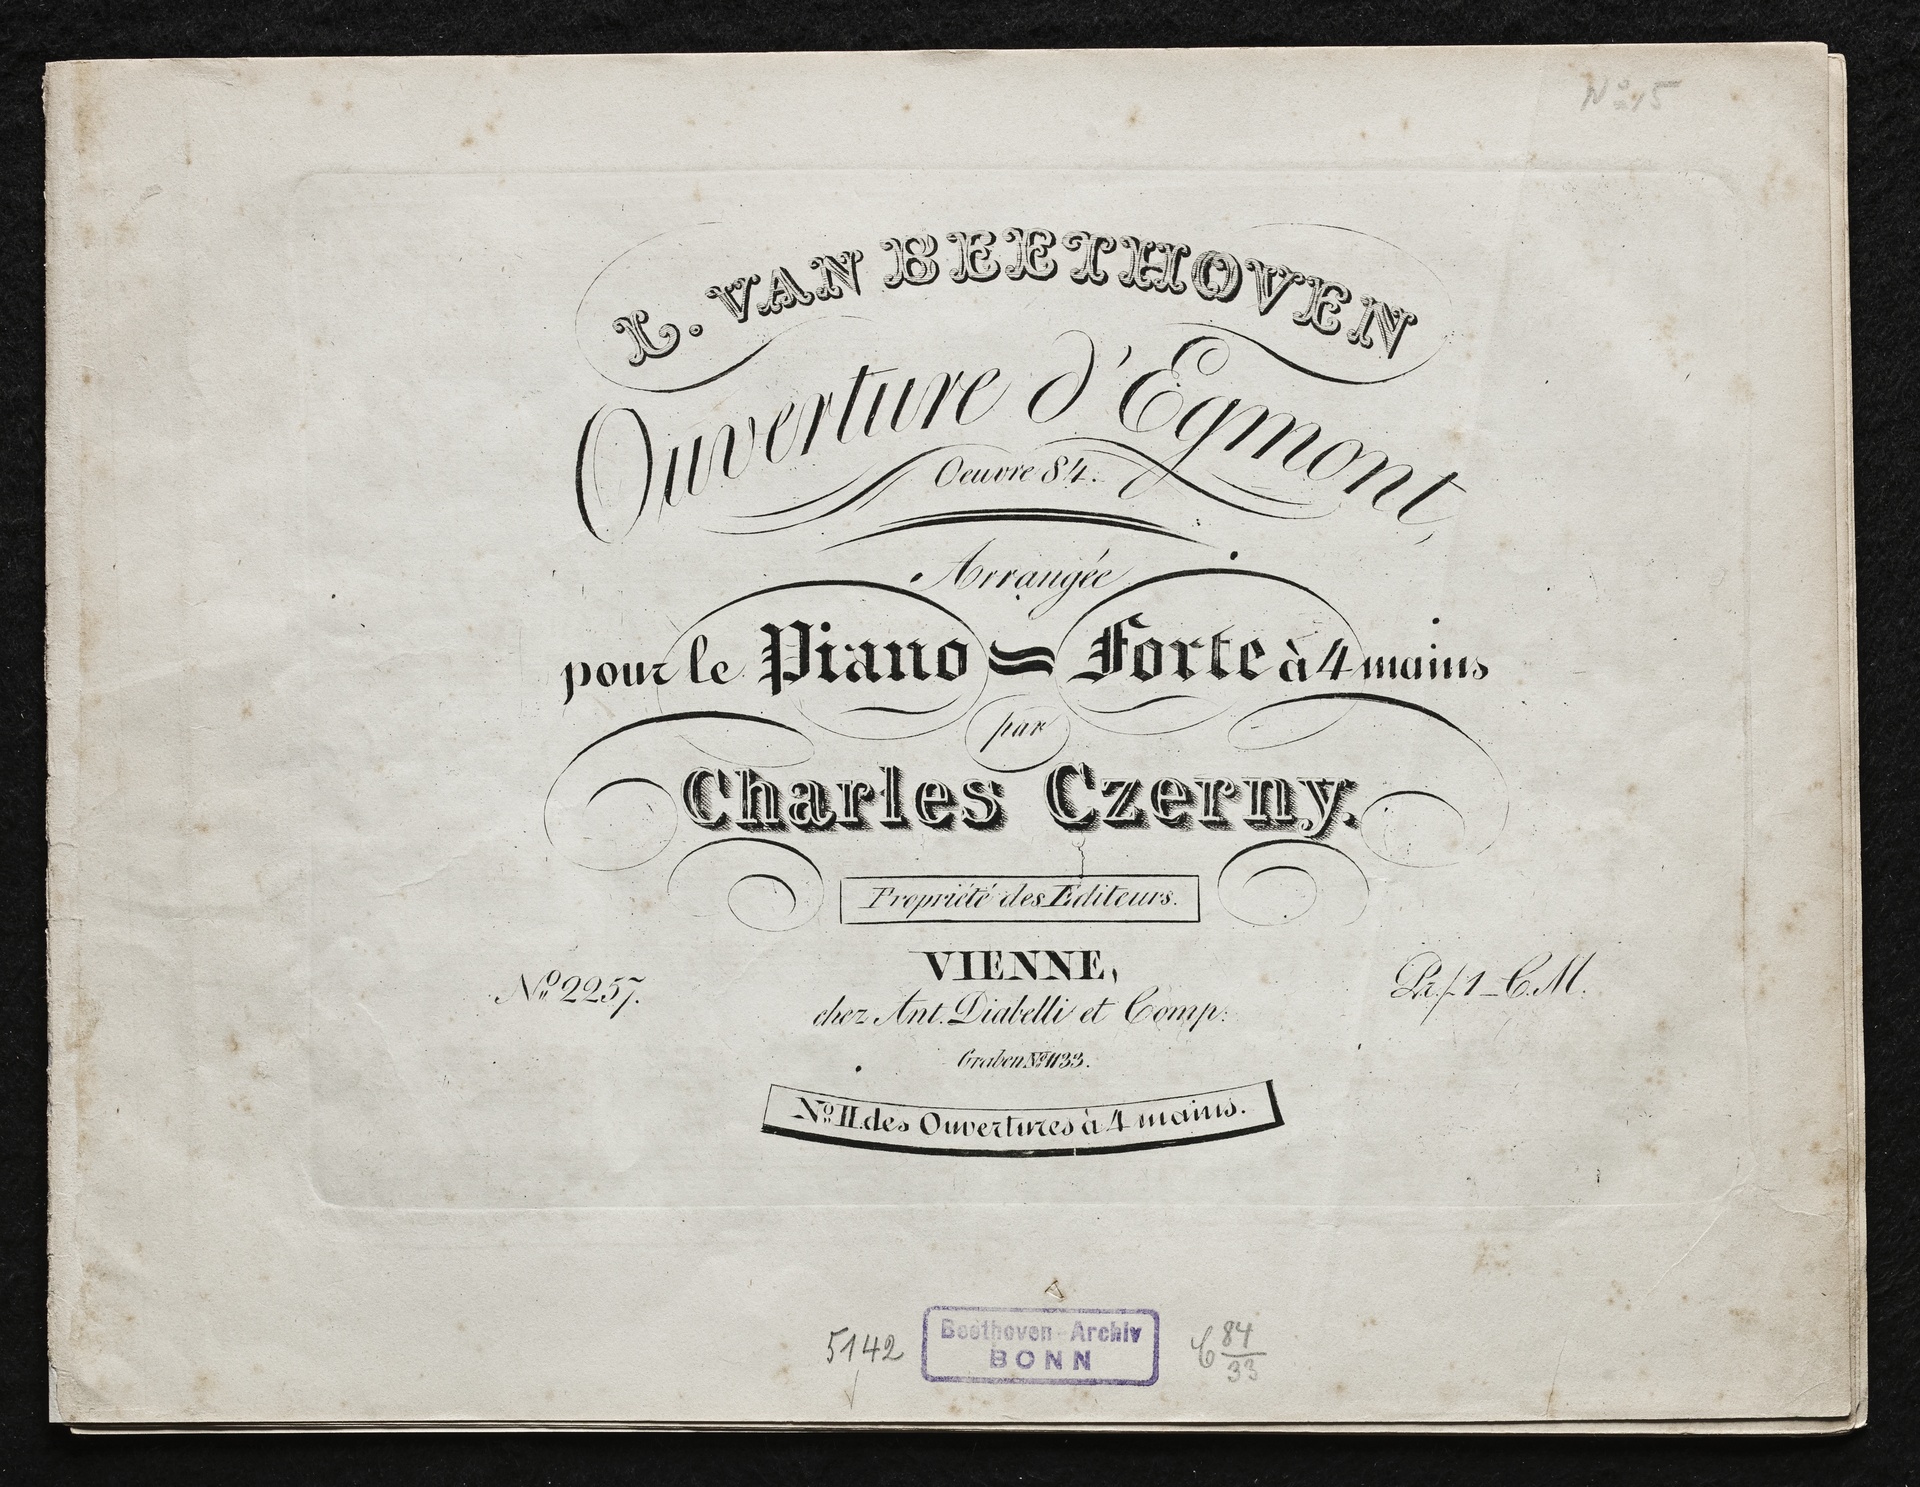 Nº 15
L. VAN BEETHOVEN
Ouverture d'Egmont,
Oeuvre 84.
Arrangée
pour le Piano=Forte à 4 mains
par
Charles Czerny.
Propriété des Editeurs.
VIENNE,
Nº 2257.
Pr. f 1_C.M.
chez Ant. Diabelli et Comp:
Graben Nº 1133.
Nº II. des Ouvertures à 4 mains.
5142
Beethoven-Archiv
BONN
C 84/33